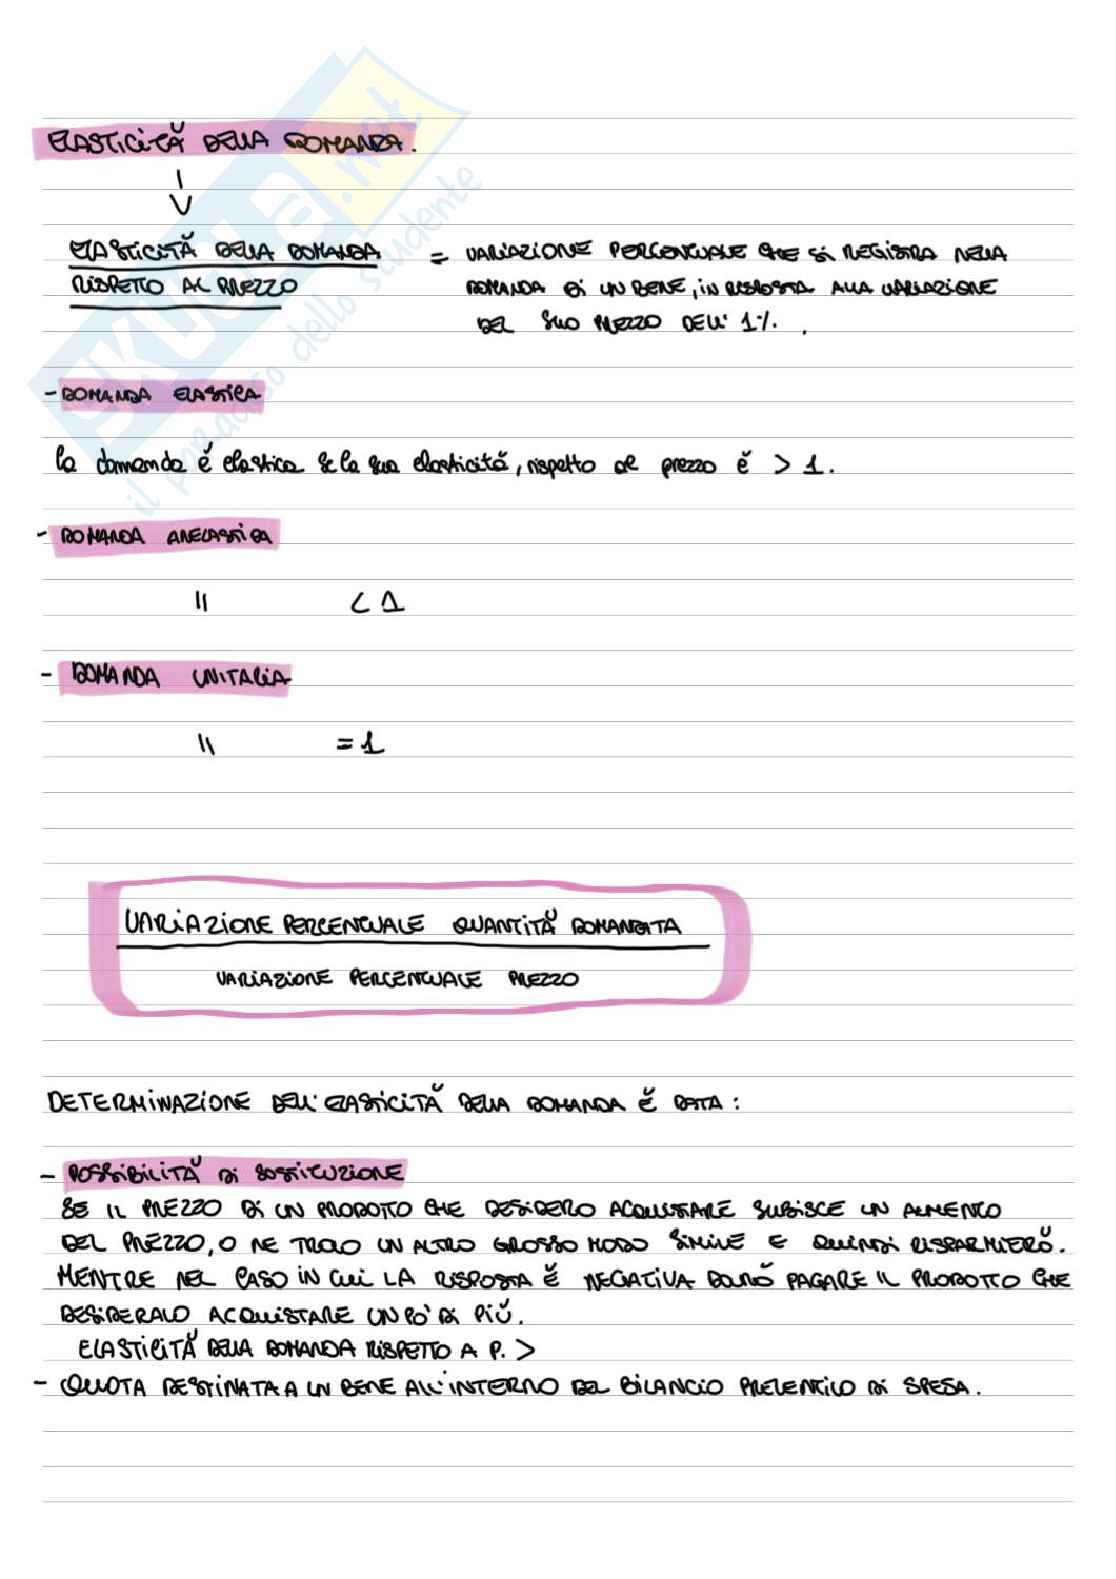 ELASTICITÀ DELLA DOMANDA.
ELASTICITÀ DELLA DOMANDA RISPETTO AL PREZZO = VARIAZIONE PERCENTUALE CHE SI REGISTRA NELLA
DOMANDA DI UN BENE, IN RISPOSTA ALLA VARIAZIONE
DEL SUO PREZZO DELL' 1%.
- DOMANDA ELASTICA
la domanda è elastica se la sua elasticità, rispetto al prezzo è > 1.
- DOMANDA ANELASTICA
" < 1
- DOMANDA UNITARIA
" = 1
VARIAZIONE PERCENTUALE QUANTITÀ DOMANDATA
VARIAZIONE PERCENTUALE PREZZO
DETERMINAZIONE DELL'ELASTICITÀ DELLA DOMANDA È DATA:
- POSSIBILITÀ DI SOSTITUZIONE
SE IL PREZZO DI UN PRODOTTO CHE DESIDERO ACQUISTARE SUBISCE UN AUMENTO
DEL PREZZO, O NE TROVO UN ALTRO GROSSO MODO SIMILE E QUINDI RISPARMIERÒ.
MENTRE NEL CASO IN CUI LA RISPOSTA È NEGATIVA DOVRÒ PAGARE IL PRODOTTO CHE
DESIDERAVO ACQUISTARE UN PÒ DI PIÙ.
ELASTICITÀ DELLA DOMANDA RISPETTO A P. >
- QUOTA DESTINATA A UN BENE ALL'INTERNO DEL BILANCIO PREVENTIVO DI SPESA.
SKUOLA.net
il paradiso dello studente